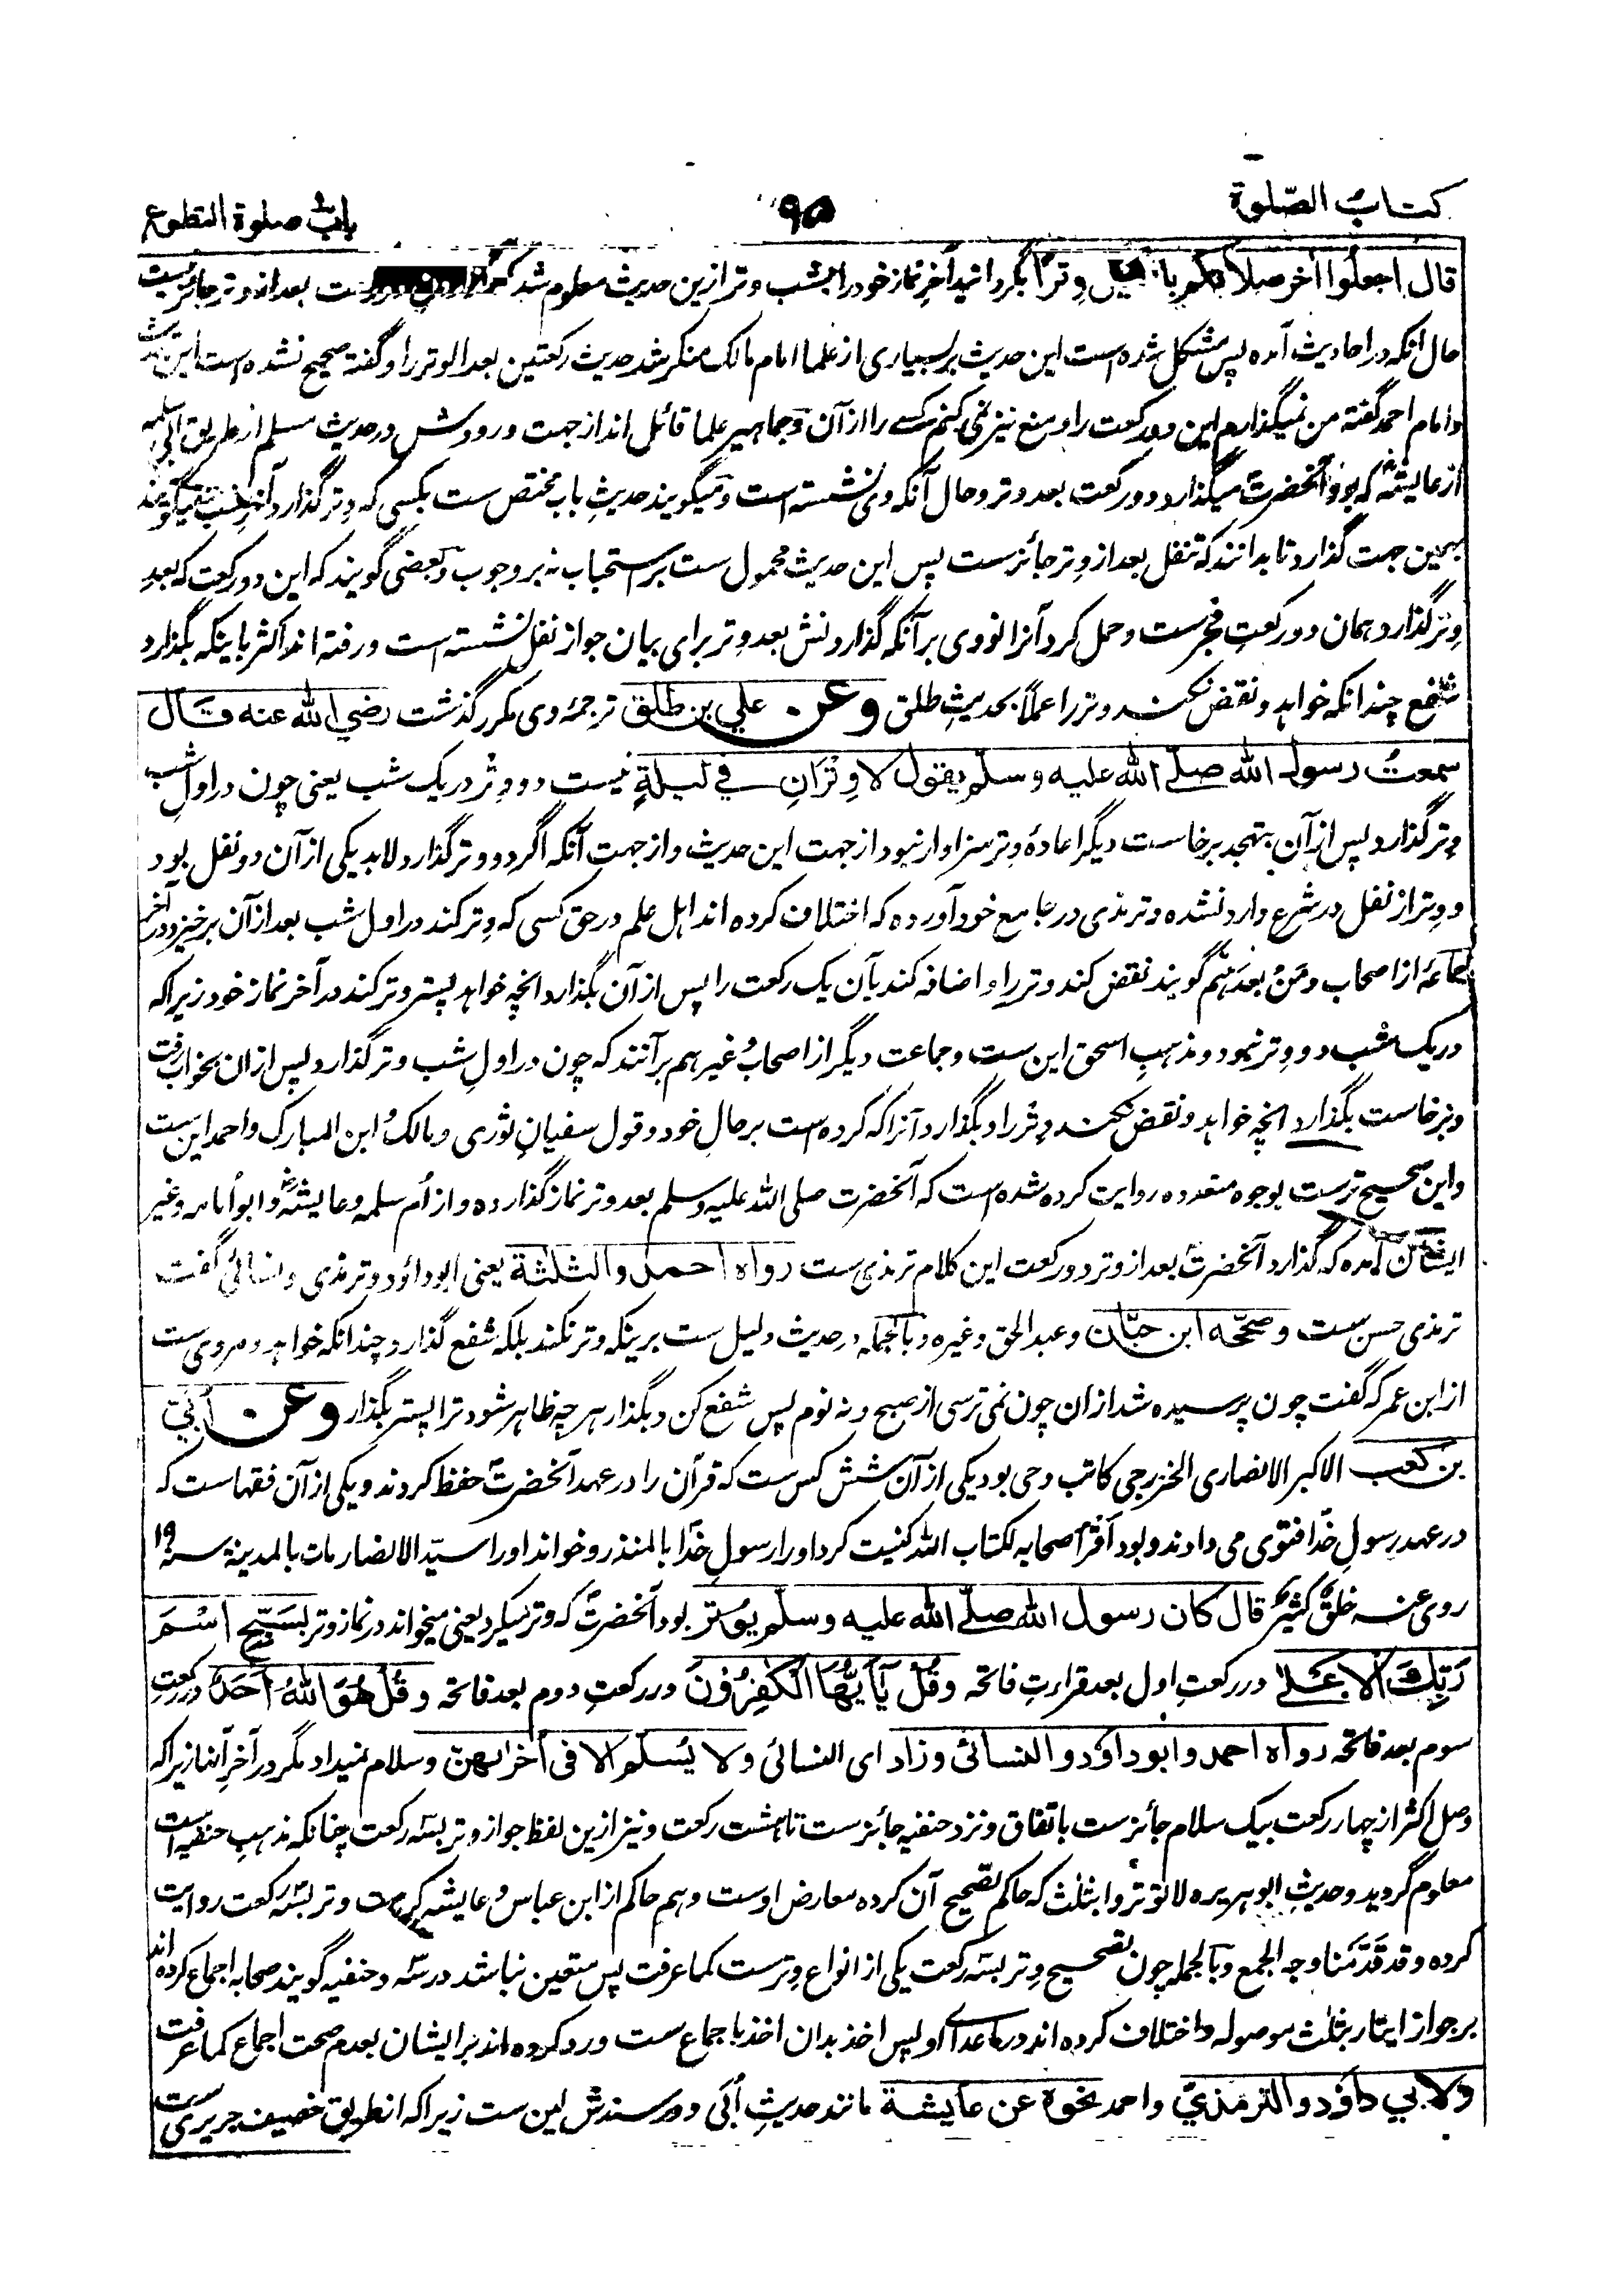 کتاب الصّلوة
۹۵
باب صلوة التطوع
قال اجعلوا آخر صلاتکم وترًا بگردانید آخر نماز خود را بشب وتر ازین حدیث معلوم شد که بعد از وتر جائز نیست
حال آنکه در احادیث آمده پس مشکل شده است این حدیث بر بسیاری از علما امام مالک منکر شد حدیث رکعتین بعد الوتر را و گفته صحیح نشده است این حدیث
و امام احمد گفته من نمیگذارم این دو رکعت را و منع نیز نمی کنم کسے را از آن و جماهیر علما قائل اند از جهت ورودش در حدیث مسلم از طریق ابی سلمه
از عایشهؓ که بود آنحضرتؐ میگذارد دو رکعت بعد وتر و حال آنکه وی نشسته است و میگویند حدیثِ باب مختص ست بکسی که وتر گذارد آخرِ شب
بهمین جهت گذارد تا بدانند که تنفل بعد از وتر جائزست پس این حدیث محمول ست بر استحباب نه بر وجوب و بعضی گویند که این دو رکعت که بعدِ
وتر گذارد همان دو رکعتِ فجرست و حمل کرد آنرا نووی بر آنکه گذاردنش بعد وتر برای بیان جواز نفل نشسته است و رفته اند اکثر باینکه بگذارد
شفع چندانکه خواهد و نقض نکند وتر را عملاً بحدیثِ طلق وعن علي بن طلق ترجمهٔ وی مکرر گذشت رضي الله عنه قال
سمعتُ رسول الله صلّے الله علیه وسلّم یقول لا وِتْرَانِ في لیلةٍ نیست دو وِتْر در یک شب یعنی چون در اولِ شب
وتر گذارد پس از آن بتهجد برخاست دیگر اعادهٔ وتر سزاوار نبود از جهت این حدیث و از جهت آنکه اگر دو وتر گذارد لابد یکی از آن دو نفل بود
و وتر از نفل در شرع وارد نشده و ترمذی در جامع خود آورده که اختلاف کرده اند اهل علم در حق کسی که وتر کند در اول شب بعد از آن برخیزد در آخر
جماعهٔ از اصحاب و مَنْ بعدَهُم گویند نقض کند وتر را و اضافه کند بآن یک رکعت را پس از آن بگذارد انچه خواهد پستر وتر کند در آخر نماز خود زیراکه
در یک شب دو وتر نبود و مذهبِ اسحق این ست و جماعت دیگر از اصحاب و غیر هم بر آنند که چون در اولِ شب وتر گذارد پس ازان بخواب رفت
و برخاست بگذارد انچه خواهد و نقض نکند وِتْر را و بگذارد آنرا که کرده است بر حالِ خود و قول سفیان ثوری و مالک و ابن المبارک و احمد این ست
و این صحیح ترست بوجوه متعدده روایت کرده شده است که آنحضرت صلی الله علیه وسلم بعد وتر نماز گذارده و از اُم سلمه و عایشهؓ و ابو اُمامه و غیر
ایشان آمده که گذارد آنحضرتؐ بعد از وتر دو رکعت این کلام ترمذی ست رواه احمد والثلثة یعنی ابو داؤد و ترمذی و نسائی گفت
ترمذی حسن ست وصحّحه ابن حبّان و عبد الحق و غیره و بالجمله در حدیث دلیل ست برینکه وتر نکند بلکه شفع گذارد چندانکه خواهد و مروی ست
از ابن عمر که گفت چون پرسیده شد ازان چون نمی ترسی از صبح و نه نوم پس شفع کن و بگذار هر چه ظاهر شود ترا پستر بگذار وعن اُبَيّ
بن کعب الاکبر الانصاری الخزرجی کاتب وحی بود یکی از آن شش کس ست که قرآن را در عهد آنحضرتؐ حفظ کردند و یکی از آن فقهاست که
در عهد رسولِ خدا فتوی می دادند و بود اَقرَأ صحابه لکتاب الله کنیت کرد او را رسولِ خدا بابا المنذر و خواند او را سیّد الانصار مات بالمدینة سنه ۱۹
روی عنه خلقٌ کثیرٌ قال کان رسول الله صلّے الله علیه وسلّم یوتر بود آنحضرتؐ که وتر میکرد یعنی میخواند در نماز وتر بسَبِّحِ اسْمَ
رَبِّكَ الاعلے در رکعتِ اول بعد قراءتِ فاتحه وقُلْ یٰٓاَیُّهَا الْکٰفِرُوْنَ در رکعتِ دوم بعد فاتحه وقُلْ هُوَ اللهُ اَحَدٌ در رکعتِ
سوم بعد فاتحه رواه احمد و ابو داؤد و النسائی وزاد ای النسائی ولا یُسلّم الا فی اٰخرهنّ و سلام نمیداد مگر در آخرِ آنها زیراکه
وصل اکثر از چهار رکعت بیک سلام جائزست باتفاق و نزد حنفیه جائزست تا هشت رکعت و نیز ازین لفظ جواز وتر بسه رکعت چنانکه مذهبِ حنفیه است
معلوم گردید و حدیثِ ابو هریره لا توتروا بثلث که حاکم تصحیح آن کرده معارض اوست و هم حاکم از ابن عباس و عایشه کراهت وتر بسه رکعت روایت
کرده وقد قَدَّمَنا وجه الجمع و بالجمله چون تصحیح وتر بسه رکعت یکی از انواع وترست کما عرفت پس متعین نباشد در سه و حنفیه گویند صحابه اجماع کرده اند
بر جواز ایتار بثلث موصوله و اختلاف کرده اند در ما عدای او پس اخذ بدان اخذ باجماع ست و رد کرده اند بر ایشان بعدم صحت اجماع کما عرفت
ولابي داؤد و الترمذيّ و احمد نحوه عن عایشة مانند حدیثِ اُبَی و در سندش لین ست زیراکه از طریق خصیف جریری ست